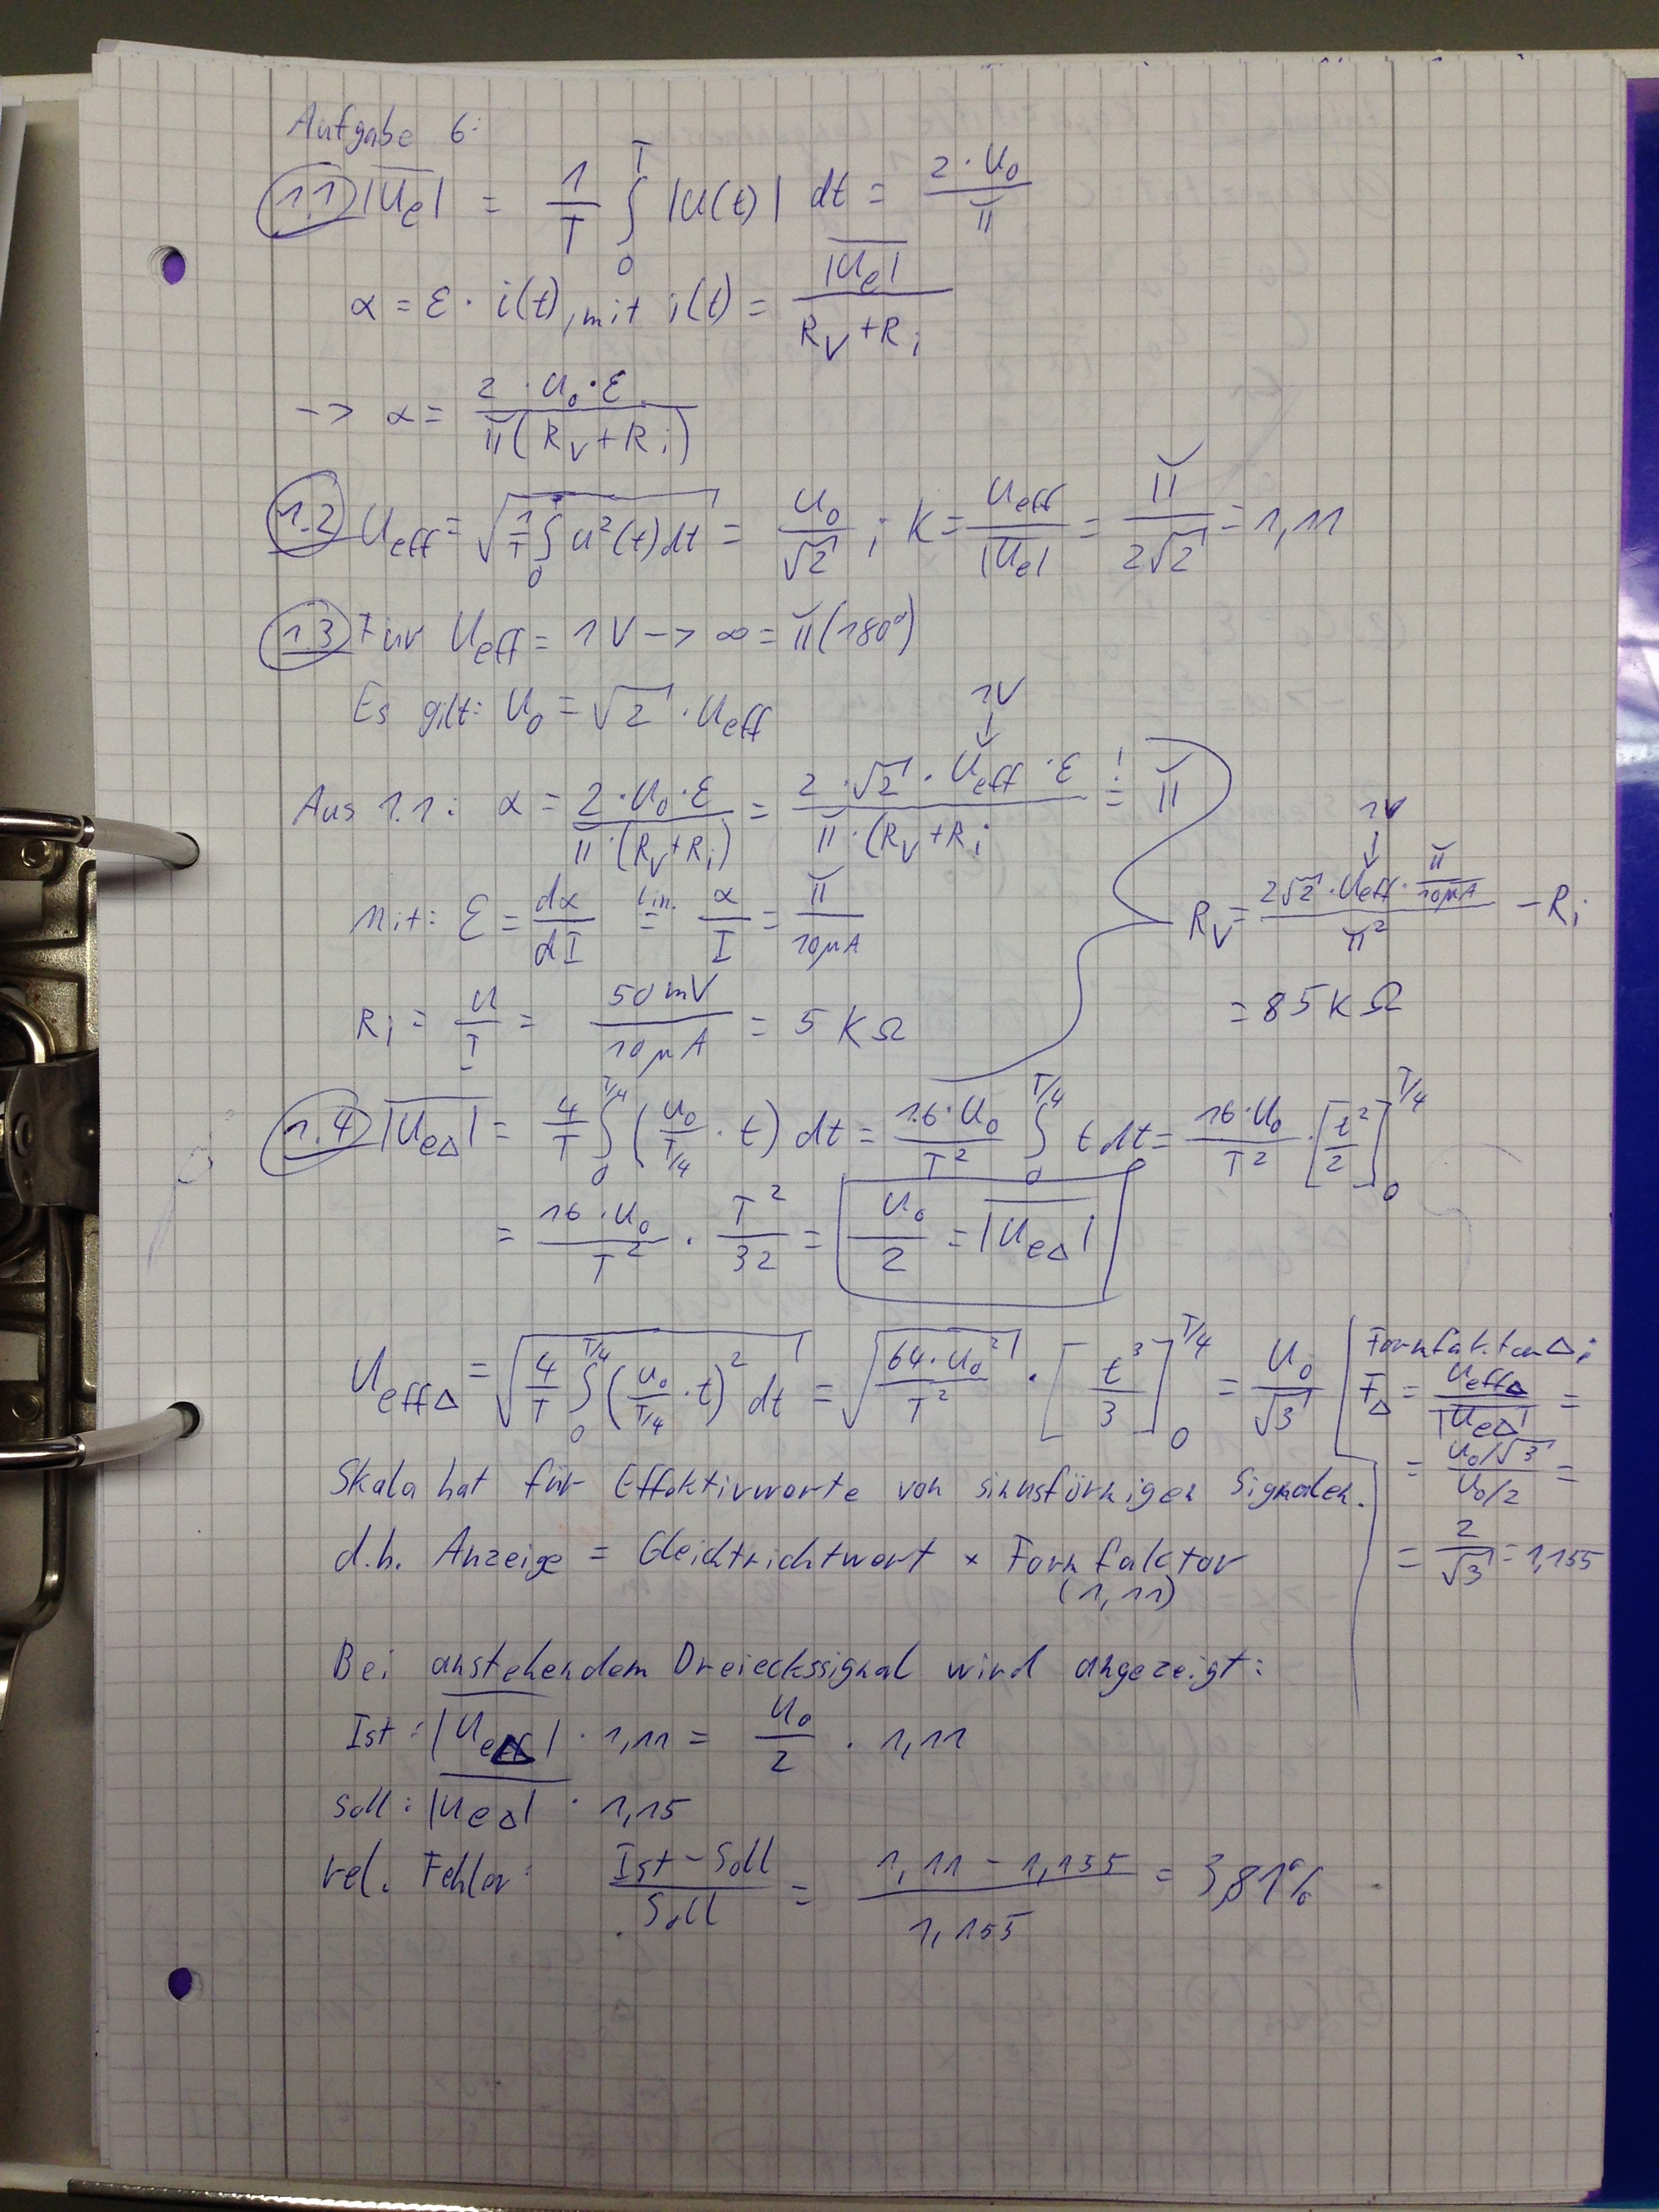 Aufgabe 6:
1.1 |Ue| = 1/T ∫₀ᵀ |U(t)| dt = 2·U₀/π
α = ε · i(t), mit i(t) = |Ue|/(R_V + R_i)
-> α = 2·U₀·ε/(π(R_V + R_i))
1.2 U_eff = √(1/T ∫₀ᵀ u²(t) dt) = U₀/√2 ; K = U_eff/|Ue| = π/(2√2) = 1,11
1.3 Für U_eff = 1V -> ∞ = π (180°)
Es gilt: U₀ = √2 · U_eff
1V
↓
Aus 1.1: α = 2·U₀·ε/(π·(R_V+R_i)) = 2·√2·U_eff·ε/(π·(R_V+R_i) =! π
Mit: ε = dα/dI =lin. α/I = π/10µA
1V
↓
R_V = (2√2·U_eff·π/10µA)/π² − R_i
R_i = U/I = 50mV/10µA = 5 KΩ
= 85 kΩ
1.4 |U_eΔ| = 4/T ∫₀^(T/4) (U₀/(T/4) · t) dt = 16·U₀/T² ∫₀^(T/4) t dt = 16·U₀/T² · [t²/2]₀^(T/4)
= 16·U₀/T² · T²/32 = U₀/2 = |U_eΔ|
U_effΔ = √(4/T ∫₀^(T/4) (U₀/(T/4) · t)² dt) = √(64·U₀²/T²) · [t³/3]₀^(T/4) = U₀/√3
Formfaktor Δ:
F_Δ = U_effΔ/|U_eΔ| =
= (U₀/√3)/(U₀/2) =
= 2/√3 = 1,155
Skala hat für Effektivwerte von sinusförmigen Signalen.
d.h. Anzeige = Gleichtrichtwert × Formfaktor
(1,11)
Bei anstehendem Dreieckssignal wird angezeigt:
Ist: |U_eΔ| · 1,11 = U₀/2 · 1,11
Soll: |U_eΔ| · 1,15
rel. Fehler: (Ist − Soll)/Soll = (1,11 − 1,155)/1,155 = 3,81%